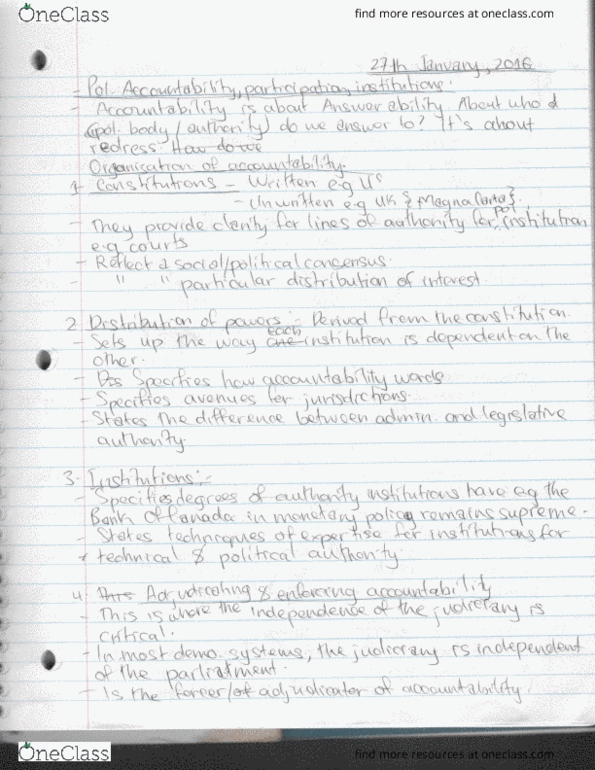 OneClass
find more resources at oneclass.com
27th January, 2016
- Pol. Accountability, participation, institutions.
- Accountability is about Answerability. About who &
(pol. body / authority) do we answer to? It's about
redress. How do we
Organisation of accountability.
1 Constitutions - Written e.g US
- Unwritten e.g UK { Magna Carta }.
- They provide clarity for lines of authority for pol. institution
e.g courts
- Reflect a social/political concensus.
- " " particular distribution of interest.
2 Distribution of powers :- Derived from the constitution.
- Sets up the way one each institution is dependent on the
other.
- Specifies how accountability words
- Specifies avenues for jurisdictions.
- States the difference between admin. and legislative
authority.
3. Institutions:-
- Specifies degrees of authority institutions have e.g the
Bank of Canada in monetary policy remains supreme.
- States techniques of expertise for institutions for
technical & political authority.
4. This Adjudicating & enforcing accountability
- This is where the independence of the judiciary is
critical.
- In most demo. systems, the judiciary is independent
of the parliament.
- Is the forcer/of adjudicator of accountability.
OneClass
find more resources at oneclass.com